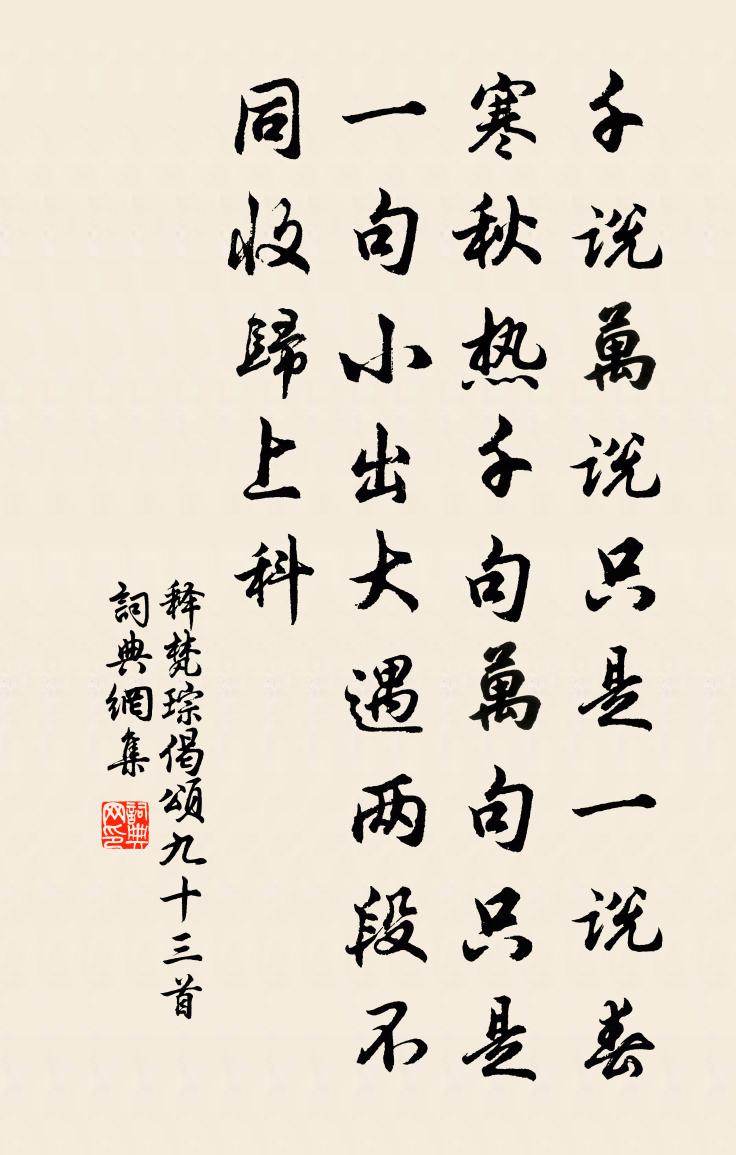 千说萬说只是一说春
寒秋热千句萬句只是
一句小出大遇两段不
同收歸上科
释梵琮偈頌九十三首
詞典網集
詞典网印